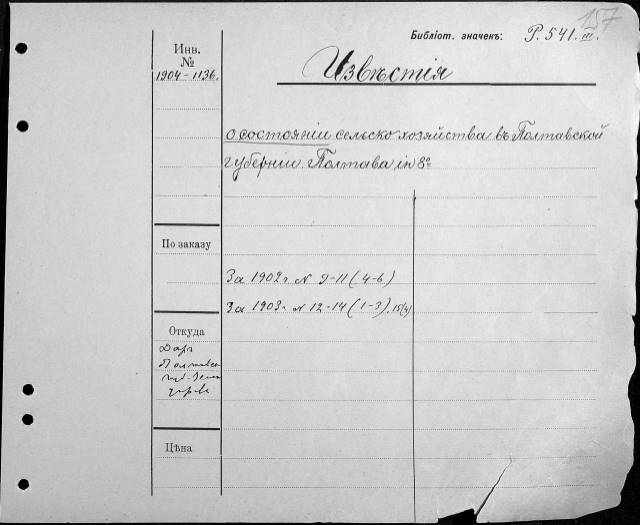 157
Библіот. значекъ: Р. 541. III.
Инв.
№
1904-1136.
Извѣстія
о состояніи сельско хозяйства въ Полтавской
губерніи. Полтава in 8º
По заказу
За 1902 г. N 9-11 (4-6)
За 1903 г. N 12-14 (1-3), 15(4)
Откуда
Даръ
Полтавск
губ. Земск
управы
Цѣна